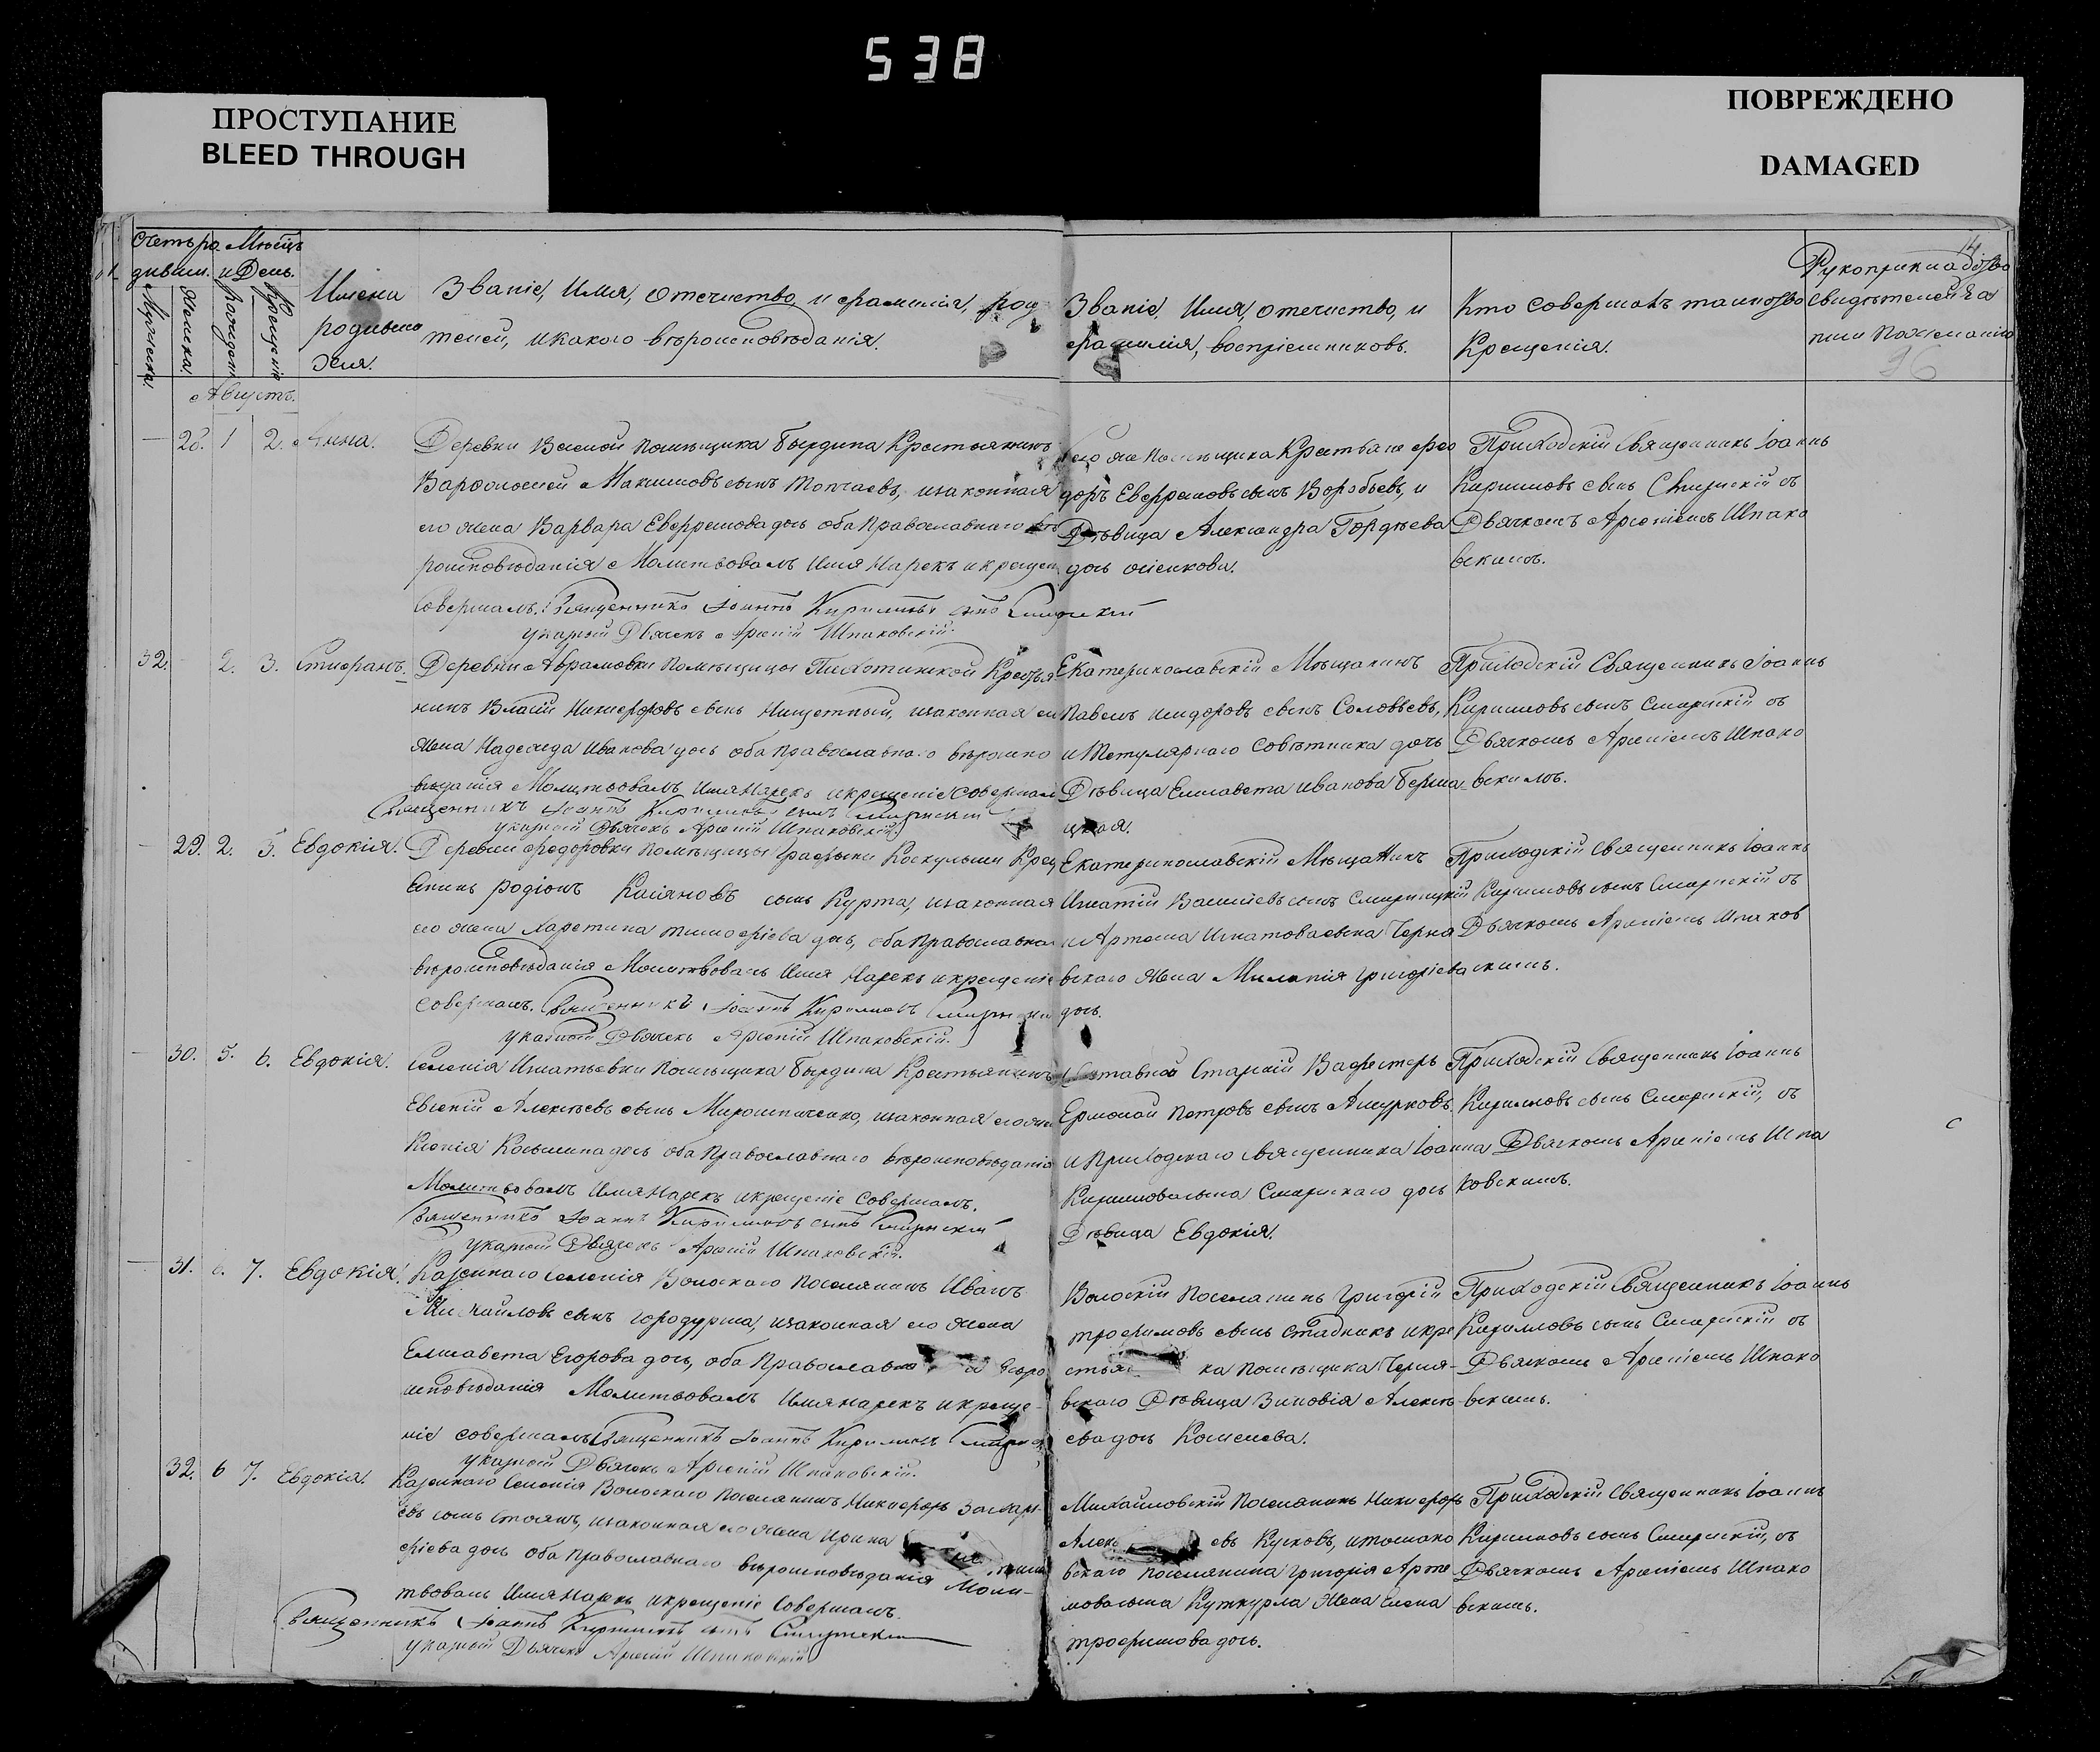 538
ПРОСТУПАНИЕ
BLEED THROUGH
ПОВРЕЖДЕНО
DAMAGED
14
Счетъ ро
дивш.
Мужеска.
Женска.
Мѣсяцъ
и День.
Рожден
Крещенія
Имена
родивши
хся.
Званіе, Имя, Отечиство, и фамилія, род
телей, икакого вѣроисповѣданія.
Званіе, Имя, Отечиство, и
фамилія, воспріемниковъ.
Кто совершалъ таинство
Крещенія.
Рукоприкладство
свидѣтелей
по желанію
Августъ.
28. 1 2. Анна.
Деревни помѣщика Бырдина Крестьянинъ
Варфоломей Максимовъ сынъ Топчаевъ, изаконная
его жена Варвара Евфремова дочь оба Православнаго вѣ
роисповѣданія Молитвовалъ Имя Нарекъ и крещен
Совершалъ. Священникъ Іоаннъ Кириловъ сынъ
указной Дьячекъ Арсеній Шпаковскій.
его же Помѣщика Крестьяне Фео
доръ Евфремовъ сынъ Воробьевъ, и
Дѣвица Александра Гордѣева
дочь
Приходскій Священникъ Іоаннъ
Кириловъ сынъ съ
Дьячкомъ Арсеніемъ Шпако
вскимъ.
32. 2. 3. Стефанъ.
Деревни Абрамовки Помѣщицы Крестья
нинъ Власій Никифоровъ сынъ Нищетный, изаконная его
жена Надежда Иванова дочь оба православнаго вѣроиспо
вѣданія Молитвовалъ Имя Нарекъ икрещеніе совершалъ
Священникъ Іоаннъ Кириловъ сынъ
указной Дьячекъ Арсеній Шпаковскій.
Екатеринославскій Мѣщанинъ
Павелъ Исидоровъ сынъ Соловьевъ,
и Тетулярнаго Совѣтника дочь
Дѣвица Елисавета Иванова
цкая.
Приходскій Священникъ Іоаннъ
Кириловъ сынъ съ
Дьячкомъ Арсеніемъ Шпако
вскимъ.
29. 2. 3. Евдокія.
Деревни Федоровки помѣщицы Графини Крес
Родіонъ Касіяновъ сынъ Курта, изаконная
его жена Харетина Тимофіева дочь, оба Православнаго
вѣроисповѣданія Молитвовалъ Имя Нарекъ икрещеніе
Совершалъ. Священникъ Іоаннъ Кириловъ
указной Дьячекъ Арсеній Шпаковскій.
Екатеринославскій Мѣщанинъ
Игнатій Василіевъ сынъ
и Артема Игнатова сына Черня
вскаго жена Миланія Григоріева
дочь.
Приходскій Священникъ Іоаннъ
Кириловъ сынъ съ
Дьячкомъ Арсеніемъ Шпаков
скимъ.
30. 5. 6. Евдокія.
Селенія Игнатьевки помѣщика Бырдина Крестьянинъ
Евгеній Алексѣевъ сынъ Мирошниченко, изаконная его жена
Ксенія Космина дочь оба Православнаго вѣроисповѣданія
Молитвовалъ Имя Нарекъ икрещеніе Совершалъ.
Священникъ Іоаннъ Кириловъ сынъ
указной Дьячекъ Арсеній Шпаковскій.
Старшій Вахмистеръ
Ермолай Петровъ сынъ Ашурковъ,
и Приходскаго Священника Іоанна
Кирилова сына дочь
Дѣвица Евдокія.
Приходскій Священникъ Іоаннъ
Кириловъ сынъ съ
Дьячкомъ Арсеніемъ Шпа
ковскимъ.
31. 6. 7. Евдокія.
Казеннаго селенія Волоскаго поселянинъ Иванъ
Михайловъ сынъ Городурша, изаконная его жена
Елисавета Егорова дочь, оба Православна вѣро
исповѣданія Молитвовалъ Имя нарекъ икреще-
ніе совершалъ Священникъ Іоаннъ Кириловъ
указной Дьячекъ Арсеній Шпаковскій.
Волоскій поселянинъ Григорій
Трофимовъ сынъ Стадникъ икре
стья ка помѣщика Черня-
вскаго Дѣвица Зиновія Алексѣ
ева дочь Кошелева.
Приходскій Священникъ Іоаннъ
Кириловъ сынъ съ
Дьячкомъ Арсеніемъ Шпако
вскимъ.
32. 6 7. Евдокія.
Казеннаго Селенія Волоскаго поселянинъ Никифоръ Захарі
евъ сынъ Стоянъ, изаконная его жена Ирина
фіева дочь оба православнаго вѣроисповѣданія Моли-
твовалъ Имя Нарекъ икрещеніе Совершалъ.
Священникъ Іоаннъ Кириловъ сынъ
указной Дьячекъ Арсеній Шпаковскій
Михайловскій поселянинъ Никифоръ
Алек евъ Кусковъ, итогожо
вскаго поселянина Григорія Арте
мова сына жена Елена
Трофимова дочь.
Приходскій Священникъ Іоаннъ
Кириловъ сынъ съ
Дьячкомъ Арсеніемъ Шпако
вскимъ.